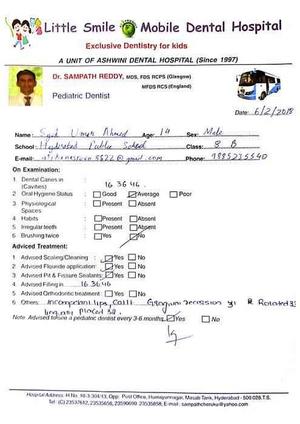 Little Smile Mobile Dental Hospital
Exclusive Dentistry for kids
A UNIT OF ASHWINI DENTAL HOSPITAL (Since 1997)
Dr. SAMPATH REDDY, MDS, FDS RCPS (Glasgow)
MFDS RCS (England)
Pediatric Dentist
Date: 6/2/2018
Name: Syed Umar Ahmed Age: 14 Sex: Male
School: Hyderabad Public School Class: 8 B
E-mail: @gmail.com Phone:
On Examination:
1 Dental Caries in 16 36 46
(Cavities)
2 Oral Hygiene Status Good Average Poor
3 Physiological Present Absent
Spaces
4 Habits Present Absent
5 Irregular teeth Present Absent
6 Brushing twice Yes No
Adviced Treatment:
1 Advised Scaling/Cleaning Yes No
2 Advised Flouride application Yes No
3 Advised Pit & Fissure Sealants Yes No
4 Advised Filling in 16 36 46
5 Advised Orthodontic treatment Yes No
6 Others: Incompetent lips, recession 31 Rotated 33
lingually placed 32.
Note: Advised to see a pediatric dentist every 3-6 months Yes No
Hospital Address: H. No. 10-3-304/13, Opp. Post Office, Humayunnagar, Masab Tank, Hyderabad - 500 028 T.S.
Tel: (C) 23537682, 23535656, E-mail: sampathcheruku@yahoo.com